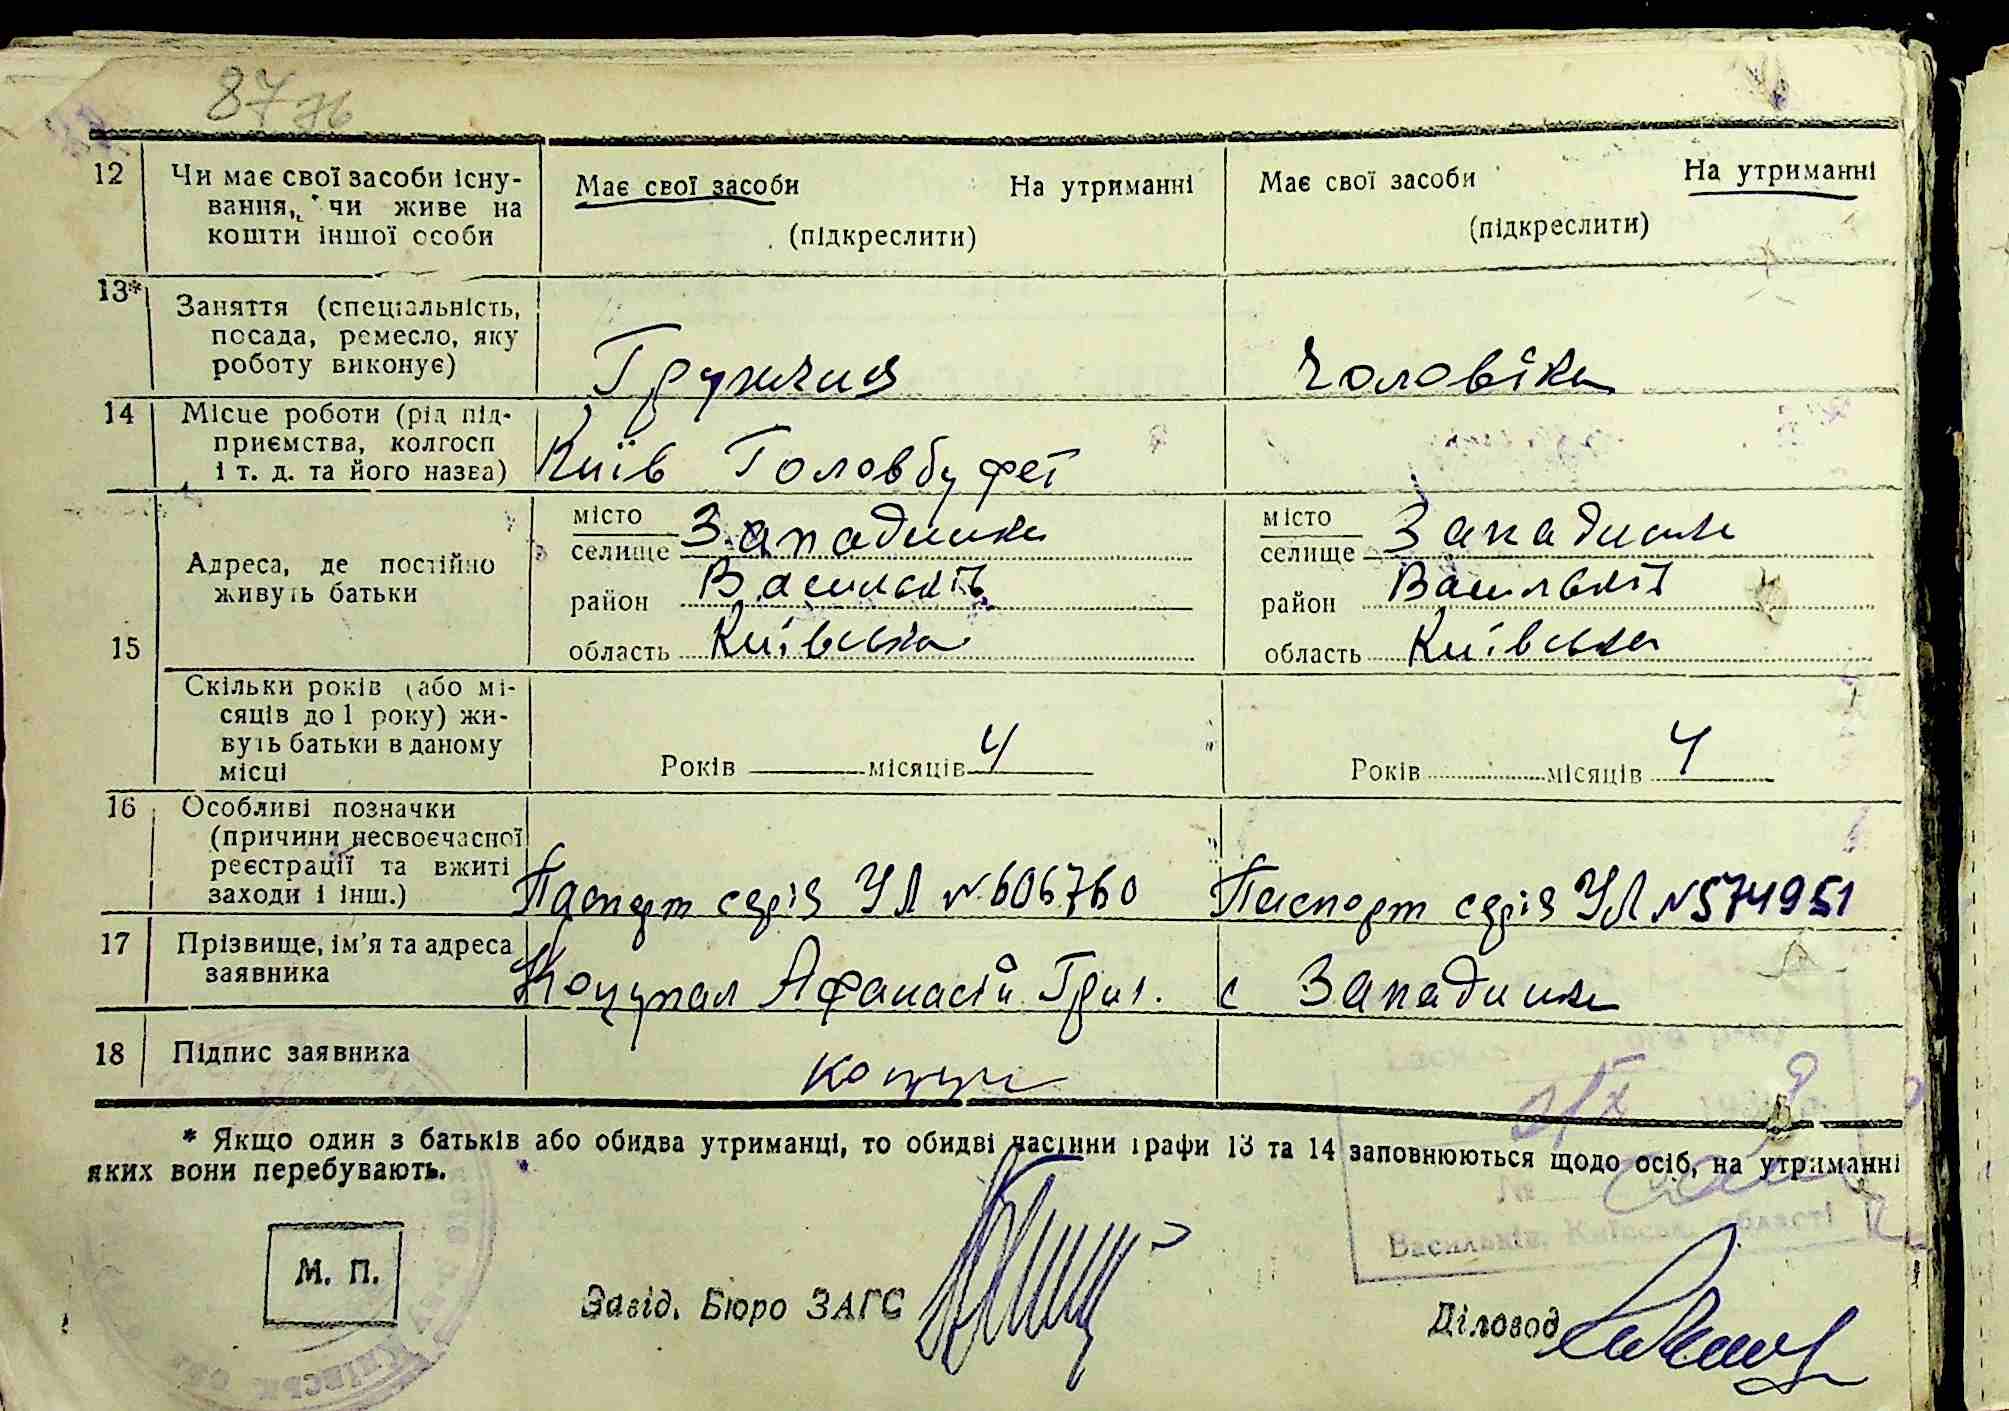 87
12 Чи має свої засоби існу-
вання, чи живе на
кошти іншої особи
Має свої засоби На утриманні
(підкреслити)
Має свої засоби На утриманні
(підкреслити)
13* Заняття (спеціальність,
посада, ремесло, яку
роботу виконує)
чоловіка
14 Місце роботи (рід під-
приємства, колгосп
і т. д. та його назва)
Київ Головбуфет
15
Адреса, де постійно
живуть батьки
місто
селище Западинка
район Васильків
область Київська
місто
селище Западинка
район Васильків
область Київська
Скільки років (або мі-
сяців до 1 року) жи-
вуть батьки в даному
місці
Років місяців 4
Років місяців 4
16 Особливі позначки
(причини несвоєчасної
реєстрації та вжиті
заходи і інш.)
Паспорт серія УЛ № 606760
Паспорт серія УЛ № 574951
17 Прізвище, ім'я та адреса
заявника
Коцупал Афанасій Григ. с Западинка
18 Підпис заявника
* Якщо один з батьків або обидва утриманці, то обидві частини графи 13 та 14 заповнюються щодо осіб, на утриманні
яких вони перебувають.
М. П.
Завід. Бюро ЗАГС
Діловод
Васильків, Київськ. області